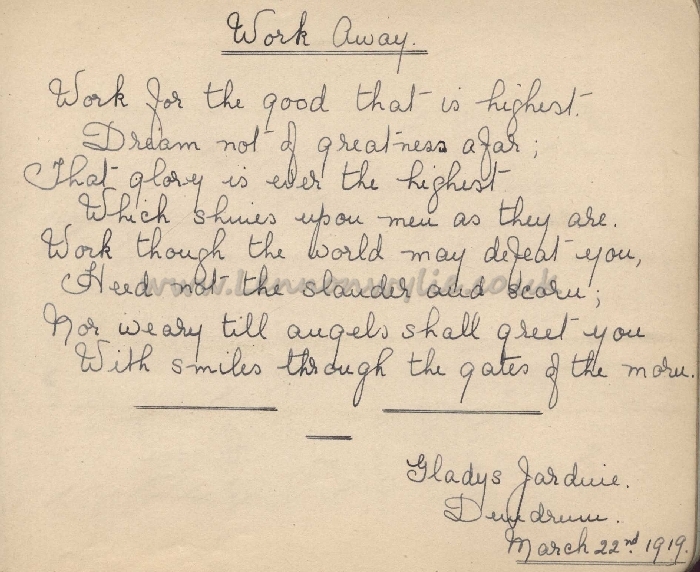 Work Away.
Work for the good that is highest.
Dream not of greatness afar;
That glory is ever the highest
Which shines upon men as they are.
Work though the world may defeat you,
Heed not the slander and scorn;
Nor weary till angels shall greet you
With smiles through the gates of the morn.
Gladys Jardine.
Dundrum.
March 22nd 1919.